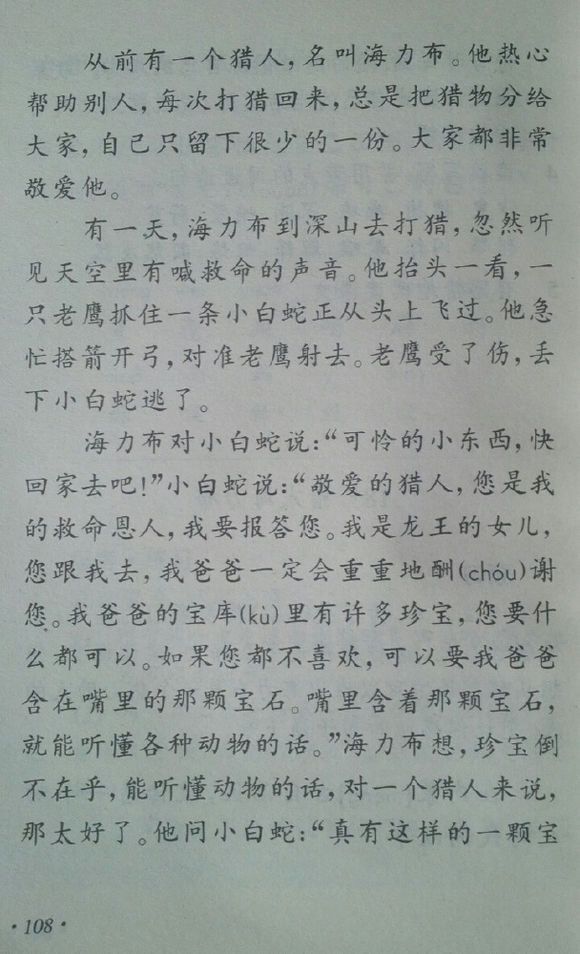 从前有一个猎人，名叫海力布。他热心
帮助别人，每次打猎回来，总是把猎物分给
大家，自己只留下很少的一份。大家都非常
敬爱他。
有一天，海力布到深山去打猎，忽然听
见天空里有喊救命的声音。他抬头一看，一
只老鹰抓住一条小白蛇正从头上飞过。他急
忙搭箭开弓，对准老鹰射去。老鹰受了伤，丢
下小白蛇逃了。
海力布对小白蛇说：“可怜的小东西，快
回家去吧！”小白蛇说：“敬爱的猎人，您是我
的救命恩人，我要报答您。我是龙王的女儿，
您跟我去，我爸爸一定会重重地酬(chóu)谢
您。我爸爸的宝库(kù)里有许多珍宝，您要什
么都可以。如果您都不喜欢，可以要我爸爸
含在嘴里的那颗宝石。嘴里含着那颗宝石，
就能听懂各种动物的话。”海力布想，珍宝倒
不在乎，能听懂动物的话，对一个猎人来说，
那太好了。他问小白蛇：“真有这样的一颗宝
·108·